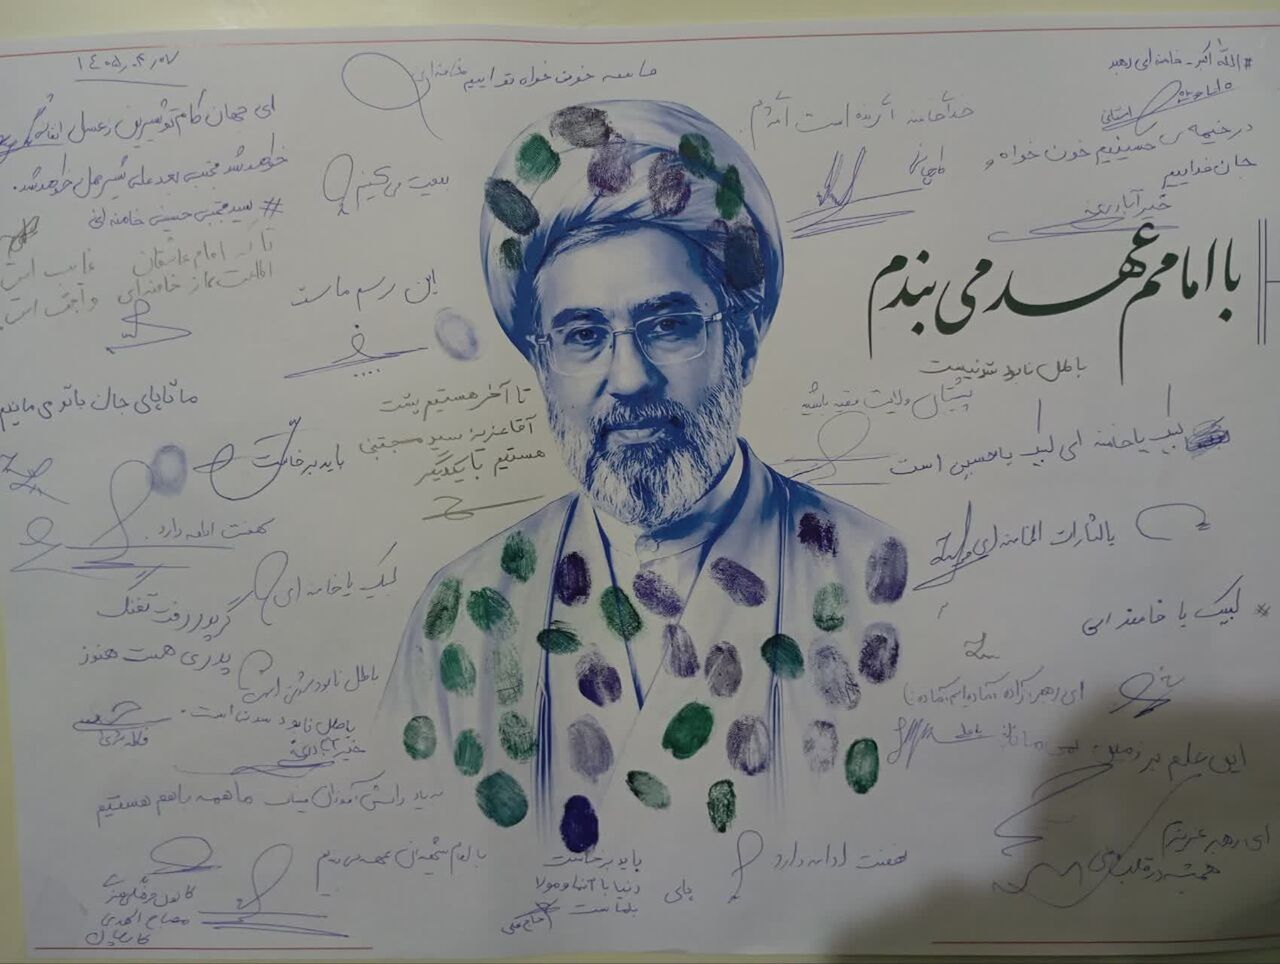 #الله اکبر - خامنه ای رهبر
در خیمه ی حسینیم خون خواه و
جان فداییم
با امامم عهد می بندم
باطل نابود شدنیست
پشتیبان ولایت فقیه باشید
لبیک یا خامنه ای لبیک یا حسین است
یالثارات الخامنه ای
* لبیک یا خامنه ای
ای رهبر آزاده آماده ایم آماده
این علم بر زمین نمی ماند
ای رهبر عزیزم
همیشه در قلب
خدا خامنه ای زنده است
ما همه خون خواه تو اییم خامنه ای
بیعت می کنیم
این رسم ماست
تا آخر هستیم پشت
آقا عزیز سید مجتبی
هستیم با یکدیگر
باید برخاست
۱۴۰۵,۰۲,۰۷
ای جهان کام تو شیرین ز عسل
خواهد شد مجتبی بعد علی شیر عمل خواهد شد.
#سید مجتبی حسینی خامنه ای
ما تا پای جان با تو می مانیم
نهضت ادامه دارد.
لبیک یا خامنه ای
گر پدر رفت تفنگ
پدری هست هنوز
باطل نابود شدنی است
باطل نابود شدنی است.
به یاد دانش آموزان میناب ما همه با هم هستیم
با امام شهیدان عهد می بندیم
باید برخاست
دنیا با آقا و مولا
نهضت ادامه دارد